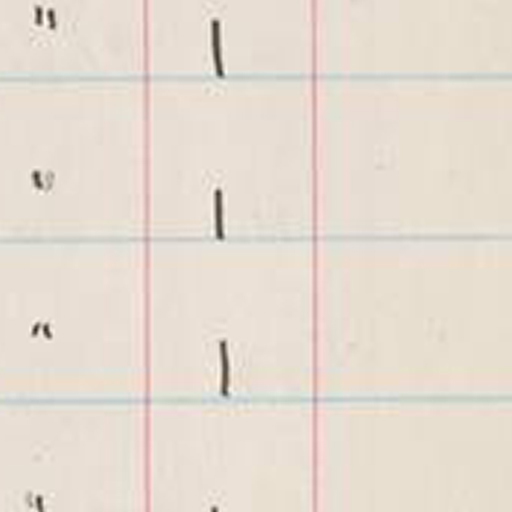 " 1
" 1
" 1
"